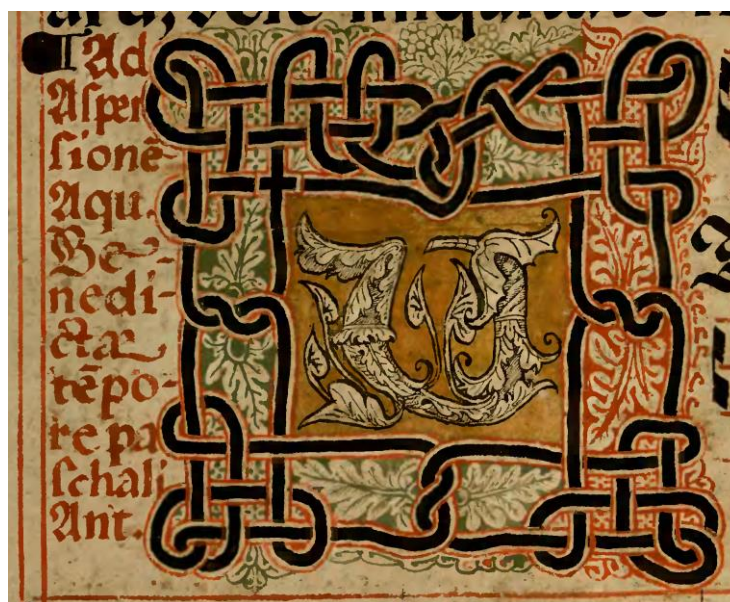 Ad
Asper
sionē
Aqu.
Be-
nedi-
cta
tēpo-
re pa
schali
Ant.
U